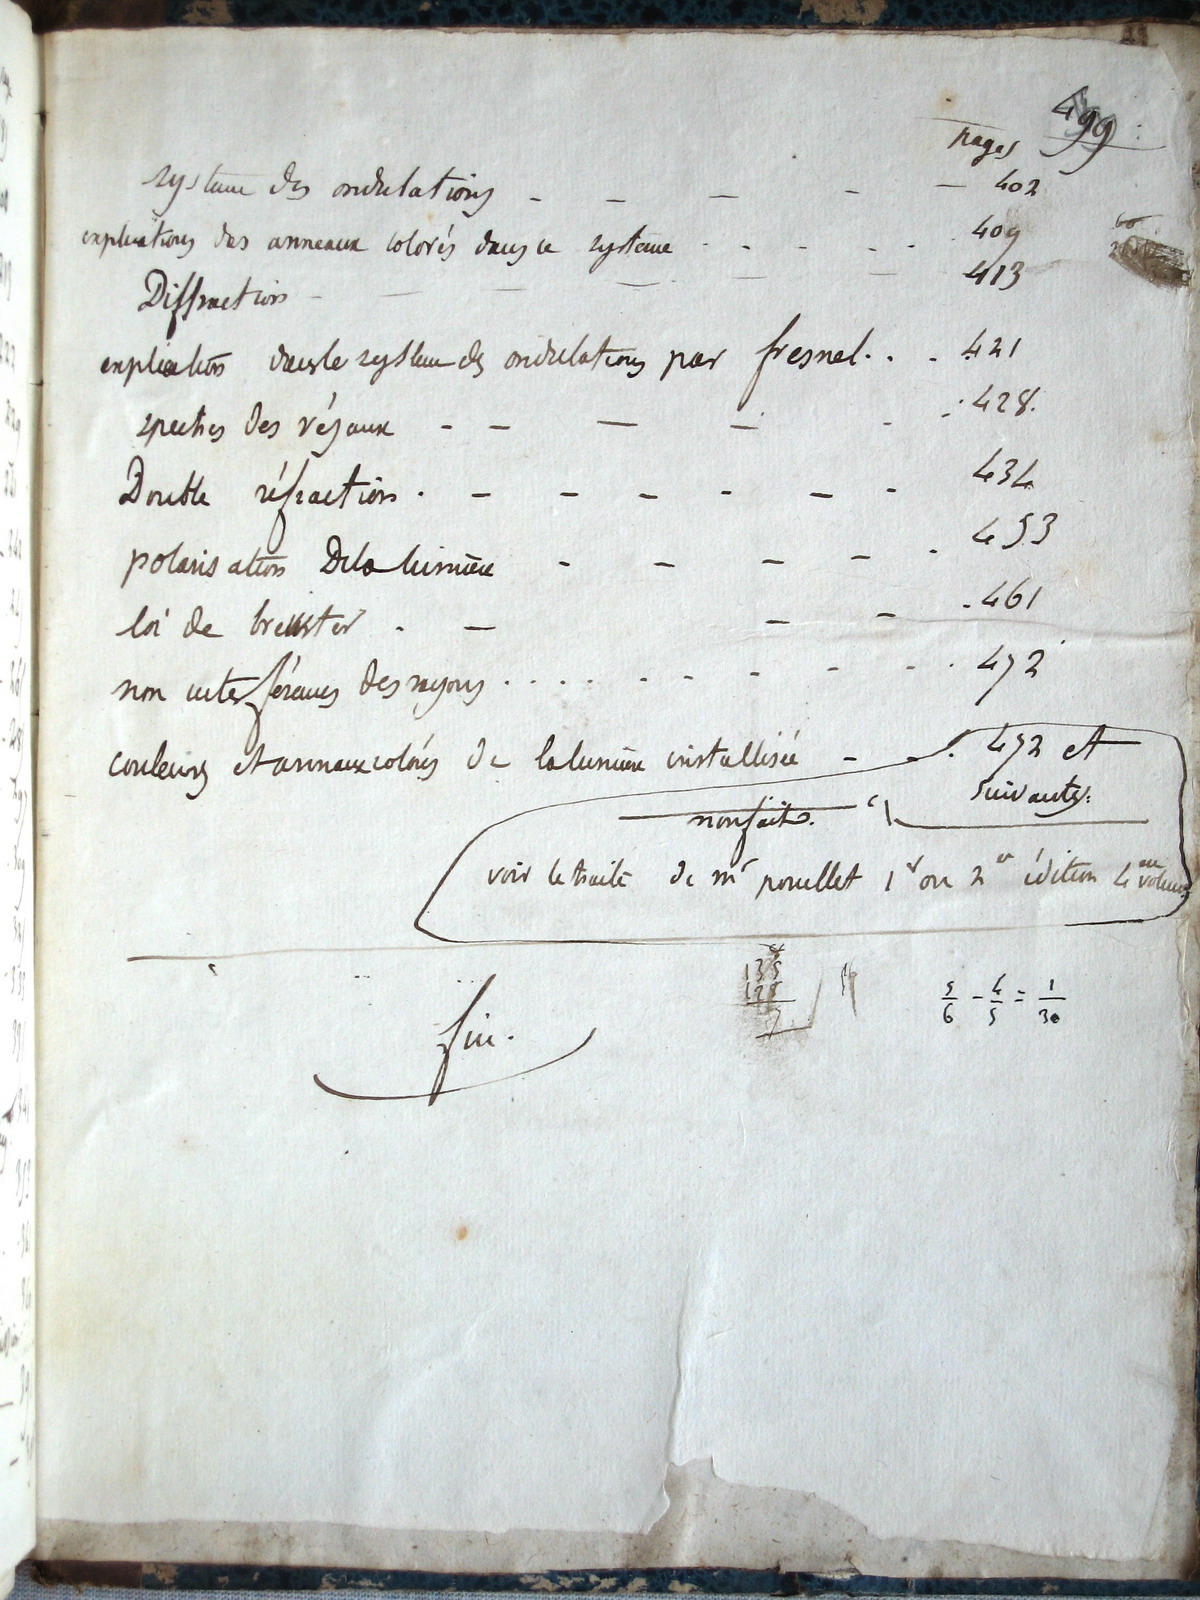 499
pages
systeme des ondulations - - - - - 402
explications des anneaux colorés dans ce systeme . . . . . 409
Diffraction - - - - - - 413
explication dans le systeme des ondulations par fresnel . . . 421
spectres des réseaux - - - - - . 428.
Double réfraction . - - - - - - 434
polarisation De la lumière - - - - . 453
loi de brewster . - - - . 461
non interférences des rayons . . . . - - - - - . 472
couleurs et anneaux colorés de la lumière cristallisée - - . 472 et
suivantes.
non fait.
voir le traité de mr pouillet 1r ou 2er édition 4me volume
135
128
7
5/6 - 4/5 = 1/30
fin.